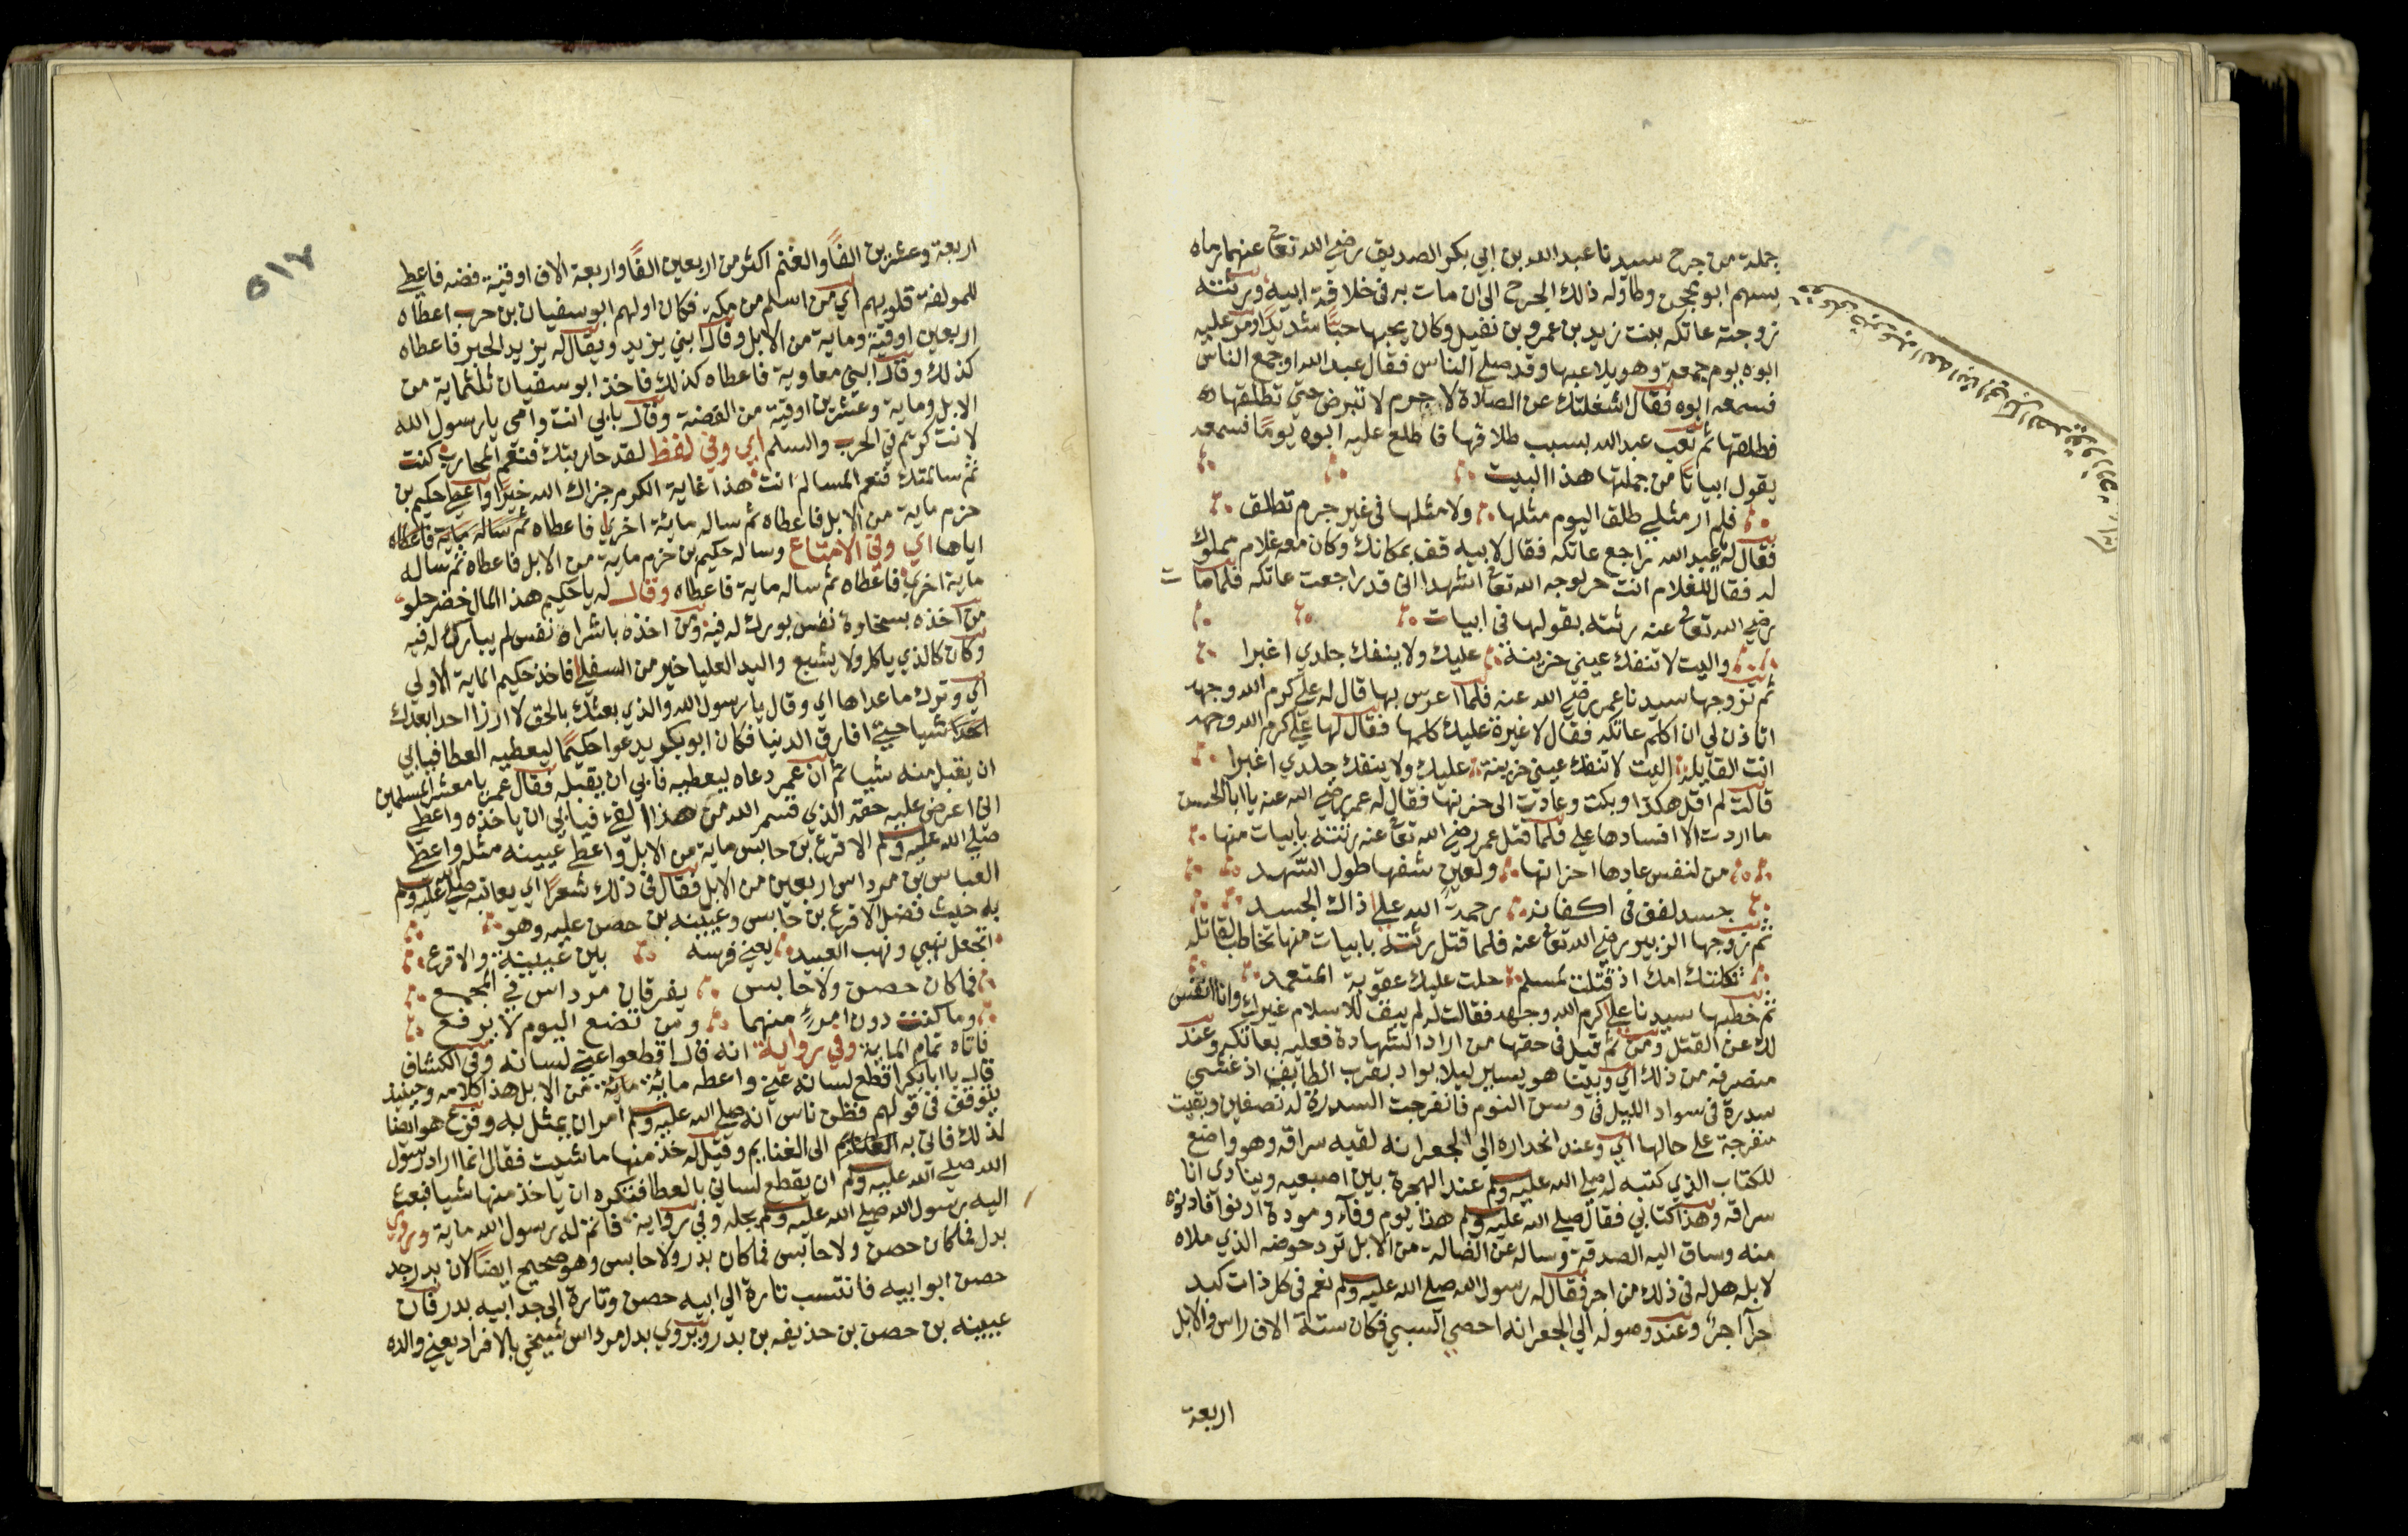 جملة من جرح سيدنا عبد الله بن ابي بكر الصديق رضي الله تعالى عنهما رماه
بسهم ابو محجن وطاوله ذلك الجرح الى ان مات به في خلافة ابيه ورثته
زوجته عاتكه بنت زيد بن عمرو بن نفيل وكان يحبها حبًا شديدًا ومر عليه
ابوه يوم جمعة وهو يلاعبها وقد صلى الناس فقال عبد الله او جمع الناس
فسمعه ابوه فقال اشغلتك عن الصلاة لا جرم لا تبرض حتى تطلقها
فطلقها ثم تعب عبد الله بسبب طلاقها فاطلع عليه ابوه يومًا فسمعه
يقول ابياتًا من جملتها هذا البيت
فلم ار مثلي طلق اليوم مثلها ولا مثلها في غير جرم تطلق
فقال له يا عبد الله راجع عاتكه فقال لابيه قف بمكانك وكان معه غلام مملوك
له فقال للغلام انت حر لوجه الله تعالى اشهد اني قد راجعت عاتكه فلما مات
رضي الله تعالى عنه رثته بقولها في ابيات
واليت لا تنفك عيني حزينة عليك ولا ينفك جلدي اغبرا
ثم تزوجها سيدنا عمر رضي الله عنه فلما اعرس بها قال له علي كرم الله وجهه
اتاذن لي ان اكلم عاتكه فقال لا غيرة عليك كلمها فقال لها علي كرم الله وجهه
انت القايلة اليت لا تنفك عيني حزينة عليك ولا ينفك جلدي اغبرا
قالت لم اقل هكذا وبكت وعادت الى حزنها فقال له عمر رضي الله عنه يا ابا الحسن
ما اردت الا افسادها علي فلما قتل عمر رضي الله تعالى عنه رثته بابيات منها
من لنفس عادها احزانها ولعين شفها طول السهد
جسد لفف في اكفانه رحمة الله على ذاك الجسد
ثم تزوجها الزبير رضي الله تعالى عنه فلما قتل رثته بابيات منها تخاطب لقاتله
ثكلتك امك اذ قتلت لمسلم حلت عليك عقوبة المتعمد
ثم خطبها سيدنا علي كرم الله وجهه فقالت له لم يبق للاسلام غيرك وانا انفس
لك عن القتل ومن ثم قيل في حقها من اراد الشهادة فعليه بعاتكه وعند
منصرفه من ذلك اي وبينا هو يسير ليلا بواد بقرب الطايف اذ غشي
سدرة في سواد الليل في وسن النوم فانفرجت السدرة له نصفين وبقيت
منفرجة على حالها اي وعند انحداره الى الجعرانه لقيه سراقه وهو واضع
للكتاب الذي كتبه له صلى الله عليه وسلم عند الهجرة بين اصبعيه وينادى انا
سراقه وهذا كتابي فقال صلى الله عليه وسلم هذا يوم وفآء ومودة ادنوا فادنوه
منه وساق اليه الصدقة وساله عن الضالة من الابل ترد حوضه الذي ملاه
لابله هل له في ذلك من اجر فقال له رسول الله صلى الله عليه وسلم نعم في كل ذات كبد
حرآ اجرٌ وعند وصوله الى الجعرانه احصي السبي فكان ستة الاف راس والابل
اربعة
اربعة وعشرين الفًا والغنم اكثر من اربعين الفًا واربعة الاف اوقية فضه فاعطى
للمولفة قلوبهم اي من اسلم من مكة فكان اولهم ابو سفيان بن حرب اعطاه
اربعين اوقية وماية من الابل وقال ابني يزيد ويقال له يزيد الخير فاعطاه
كذلك وقال ابني معاوية فاعطاه كذلك فاخذ ابو سفيان ثلثماية من
الابل وماية وعشرين اوقية من الفضة وقال بابي انت وامي يا رسول الله
لانت كريم في الحرب والسلم اي وفي لفظ لقد حاربتك فنعم المحارب كنت
ثم سالمتك فنعم المسالم انت هذا غاية الكرم جزاك الله خيرًا واعطى حكيم بن
حزم ماية من الابل فاعطاه ثم ساله ماية اخرى فاعطاه ثم ساله ماية فاعطاه
اياها اي وفي الامتاع وساله حكيم بن حزم ماية من الابل فاعطاه ثم ساله
ماية اخرى فاعطاه ثم ساله ماية فاعطاه وقال له يا حكيم هذا المال خضر حلو
من اخذه بسخاوة نفس بورك له فيه ومن اخذه باشراه نفس لم يبارك له فيه
وكان كالذي ياكل ولا يشبع واليد العليا خير من السفلى فاخذ حكيم الماية الاولى
اي وترك ما عداها اي وقال يا رسول الله والذي بعثك بالحق لا ارزا احدا بعدك
احدًا شيا حتى افارق الدنيا فكان ابو بكر يدعوا حكيمًا ليعطيه العطا فيابى
ان يقبل منه شيا ثم ان عمر دعاه ليعطيه فابى ان يقبله فقال عمر يا معشر المسلمين
اني اعرض عليه حقه الذي قسم الله من هذا الفئ فيابى ان ياخذه واعطى
صلى الله عليه وسلم الاقرع بن حابس ماية من الابل واعطى عيينه مثله واعطى
العباس بن مرداس اربعين من الابل فقال في ذلك شعرًا اي يعاتبه صلى الله عليه وسلم
به حيث فضل الاقرع بن حابس وعيينه بن حصن عليه وهو
اتجعل نهبي ونهب العبيد يعني فرسه بين عيينة والاقرع
فما كان حصن ولا حابس يفرقان مرداس في المجمع
وما كنت دون امرئ منهما ومن تضع اليوم لا يرفع
فاتاه تمام الماية وفي رواية انه قال اقطعوا عني لسانه وفي الكشاف
قال يا ابا بكر اقطع لسانه عني واعطه ماية من الابل هذا كلامه وحينيذ
يتوقف في قولهم فظن ناس انه صلى الله عليه وسلم امر ان يمثل به وفزع هو ايضا
لذلك فاتى به الى الغنايم وقيل له خذ منها ما شيت فقال انما اراد رسول
الله صلى الله عليه وسلم ان يقطع لساني بالعطا فتكره ان ياخذ منها شيا فبعث
اليه رسول الله صلى الله عليه وسلم بحله وفي رواية فاتم له رسول الله ماية وروي
بدل فما كان حصن ولا حابس فما كان بدر ولا حابس وهو صحيح ايضًا لان بدر جد
حصن ابو ابيه فانتسب تارة الى ابيه حصن وتارة الى جد ابيه بدر فان
عيينه بن حصن بن حذيفه بن بدر ويروي بدل مرداس شيخي بالافراد يعني والده
٥١٧